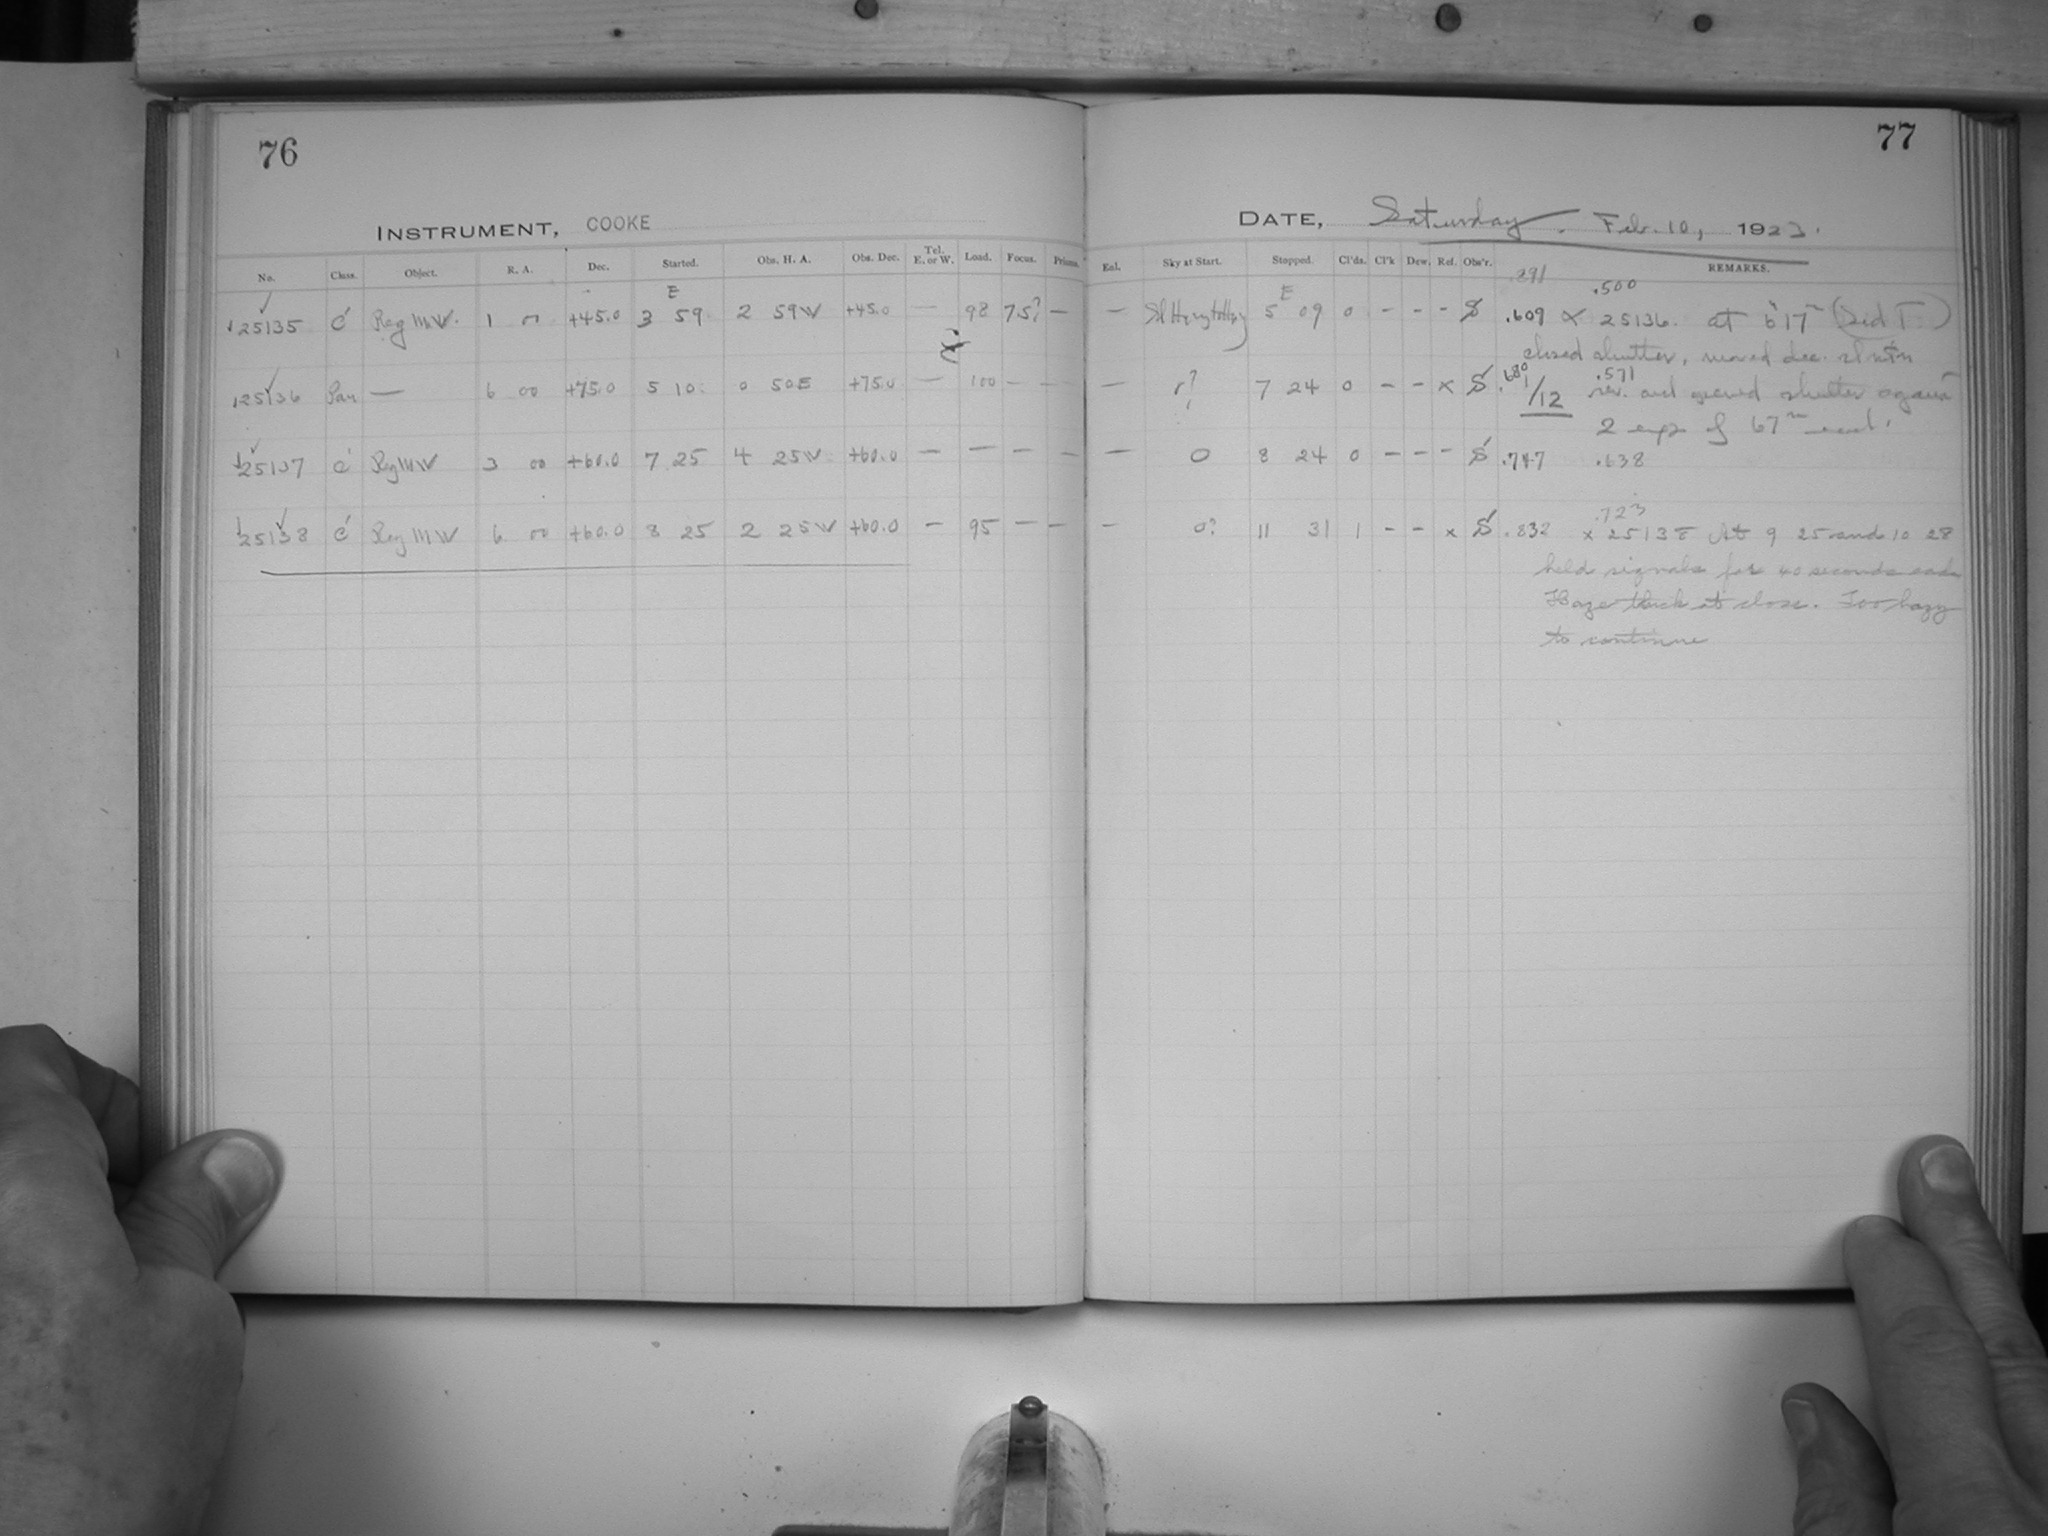 76
77
INSTRUMENT, COOKE
DATE, Saturday. Feb. 10, 1923.
No. Class. Object. R. A. Dec. Started. Obs. H. A. Obs. Dec. Tel. E. or W. Load. Focus. Prisms. Enl. Sky at Start. Stopped. Cl'ds. Cl'k Dew. Ref. Obs'r. REMARKS.
.291 .500
25135 C' Reg MW. 1 00 +45.0 E 3 59 2 59W +45.0 — 98 7.5? — — E 5 09 0 - - - S .609 x 25136. at 6h 17m (Sid T)
closed shutter, moved dec.
25136 — 6 00 +75.0 5 10 0 50E +75.0 — 100 - - — r? 7 24 0 - - x S .680 /12 .571 rev. and opened shutter again
2 exp of 67m each.
25137 C' Reg MW 3 00 +60.0 7 25 4 25W +60.0 — — — — — 0 8 24 0 - - - S .747 .638
25138 C' Reg MW 6 00 +60.0 8 25 2 25W +60.0 — 95 — — — 0? 11 31 1 - - x S .832 .723 x 25138 At 9 25 and 10 28
held signals for 40 seconds each
Haze thick at close. Too hazy
to continue